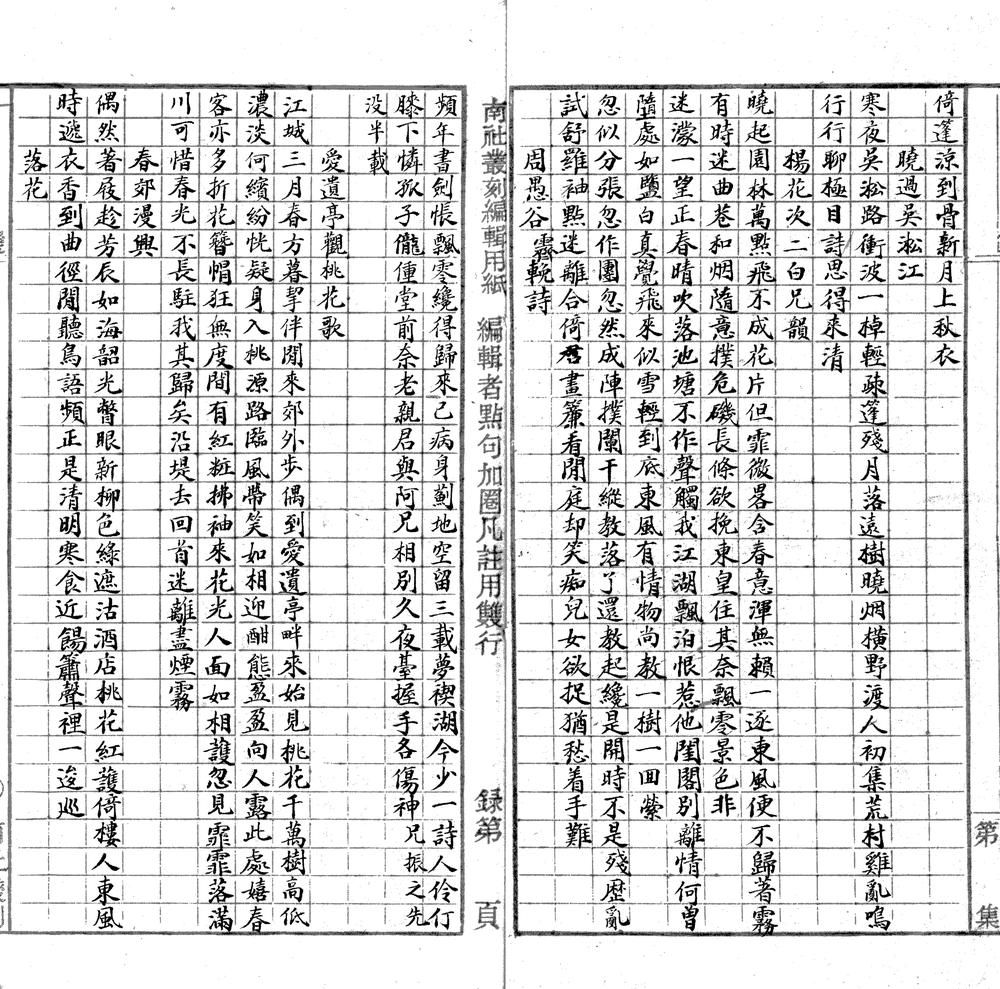 第　集
倚篷涼到骨新月上秋衣
曉過吳淞江
寒夜吳淞路衝波一棹輕疎篷殘月落遠樹曉烟橫野渡人初集荒村雞亂鳴
行行聊極目詩思得來清
楊花次二白兄韻
曉起園林萬點飛不成花片但霏微畧含春意渾無賴一逐東風便不歸著霧
有時迷曲巷和烟隨意撲危磯長條欲挽東皇住其奈飄零景色非
迷濛一望正春晴吹落池塘不作聲觸我江湖飄泊恨惹他閨閣別離情何曾
隨處如鹽白真覺飛來似雪輕到底東風有情物尚教一樹一回縈
忽似分張忽作團忽然成陣撲闌干縱教落了還教起纔是開時不是殘歷亂
試舒羅袖點迷離合倚畫簾看閒庭却笑痴兒女欲捉猶愁着手難
周愚谷靄輓詩
南社叢刻編輯用紙　編輯者點句加圈凡註用雙行　錄第　頁
頻年書劍悵飄零纔得歸來已病身薊地空留三載夢禊湖今少一詩人伶仃
膝下憐孤子儱偅堂前奈老親君與阿兄相別久夜臺握手各傷神兄振之先
没半載
愛遺亭觀桃花歌
江城三月春方暮挈伴閒來郊外步偶到愛遺亭畔來始見桃花千萬樹高低
濃淡何繽紛恍疑身入桃源路臨風帶笑如相迎酣態盈盈向人露此處嬉春
客亦多折花簪帽狂無度間有紅粧拂袖來花光人面如相護忽見霏霏落滿
川可惜春光不長駐我其歸矣沿堤去回首迷離盡煙霧
春郊漫興
偶然著屐趁芳辰如海韶光瞥眼新柳色綠遮沽酒店桃花紅護倚樓人東風
時遞衣香到曲徑閒聽鳥語頻正是清明寒食近餳簫聲裡一逡巡
落花